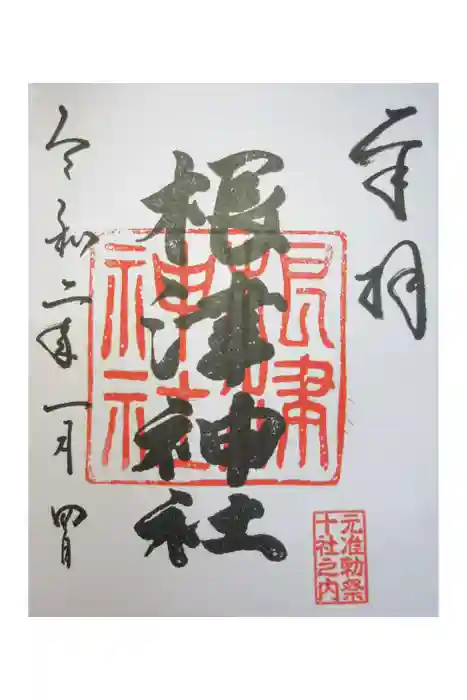 奉拝
根津神社
根津神社
元准勅祭
十社之内
令和二年一月四日